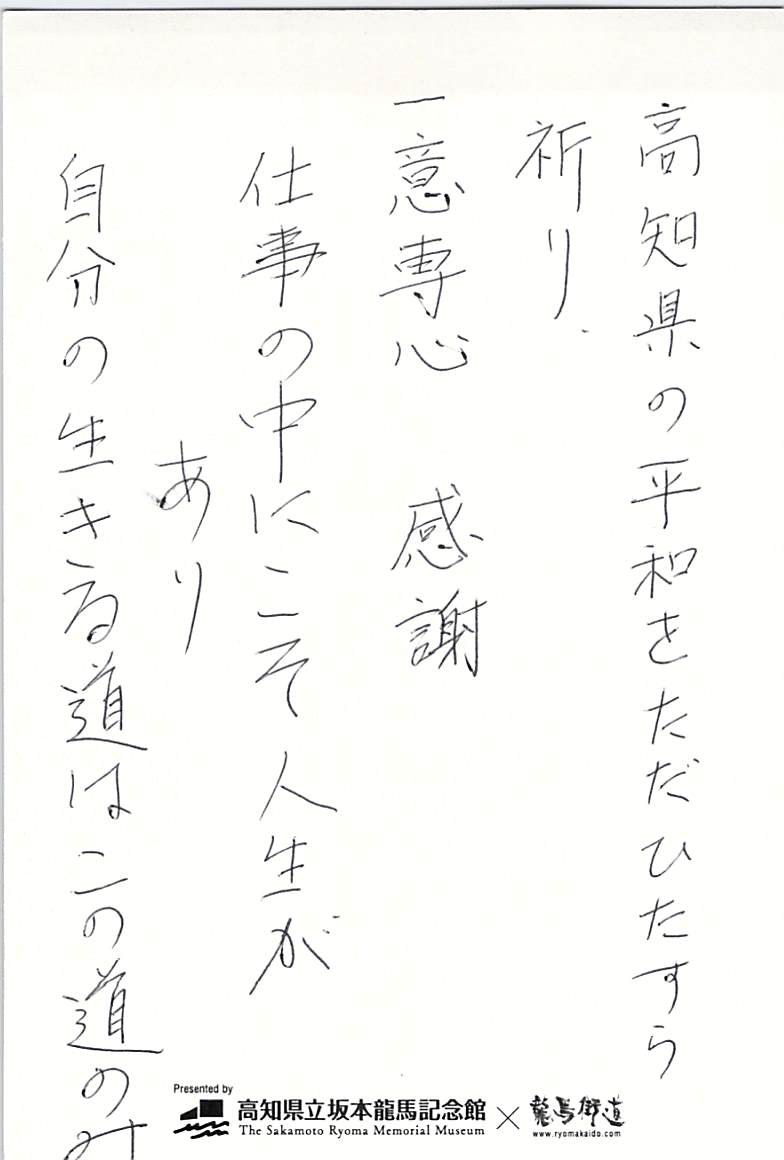 高知県の平和をただひたすら
祈り、
一意専心 感謝
仕事の中にこそ人生が
あり
自分の生きる道はこの道のみ
Presented by
高知県立坂本龍馬記念館
The Sakamoto Ryoma Memorial Museum
×
龍馬街道
www.ryomakaido.com